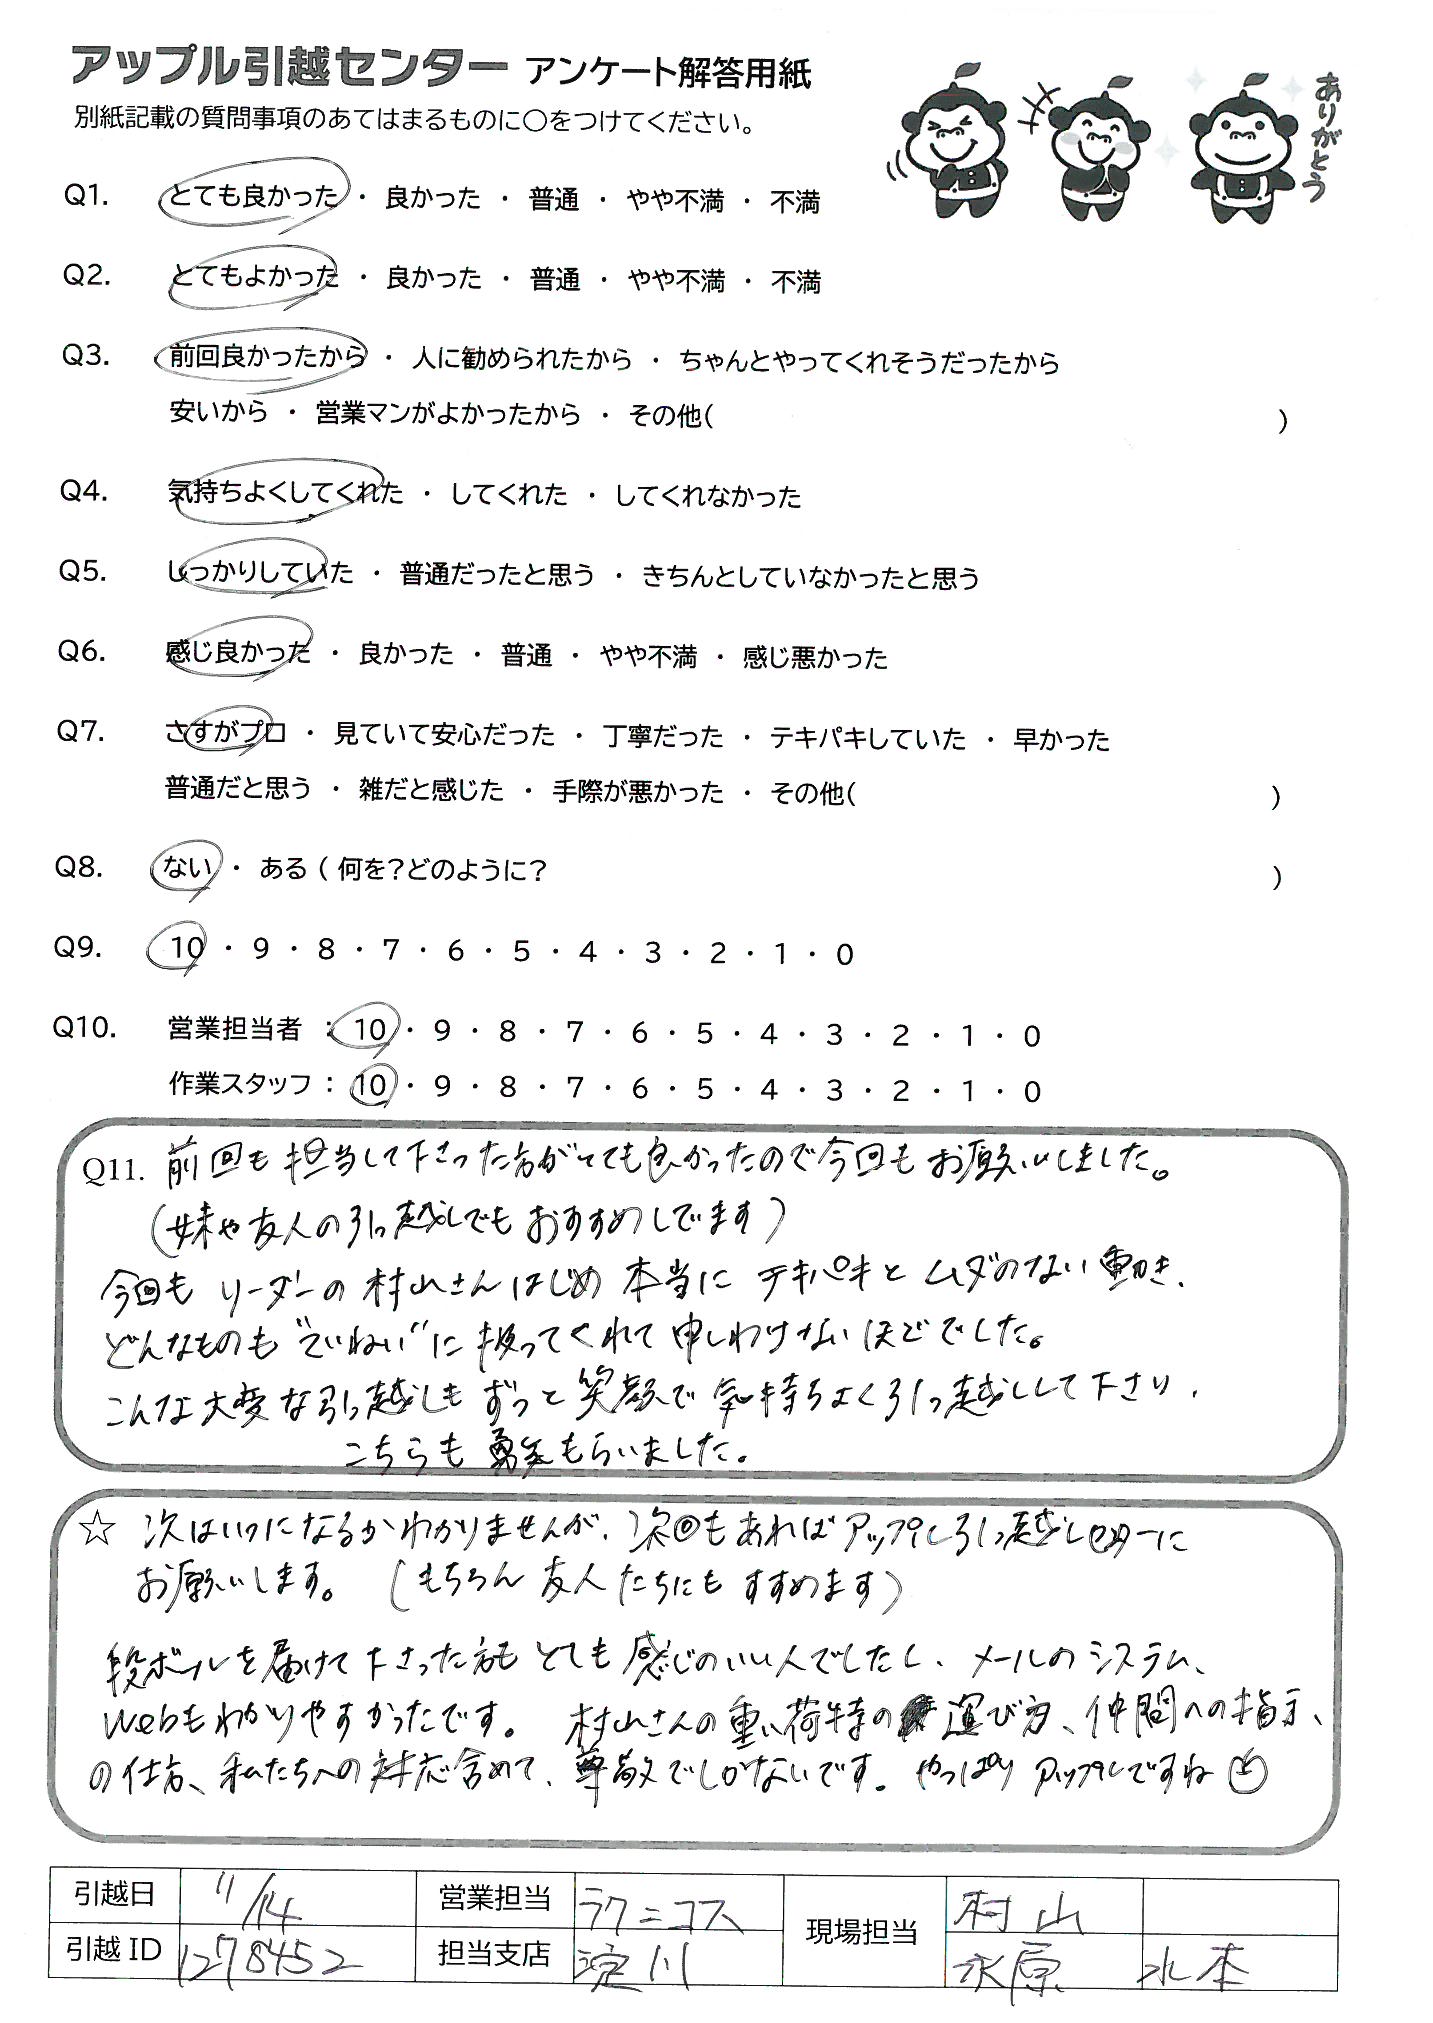 アップル引越センター アンケート解答用紙
別紙記載の質問事項のあてはまるものに○をつけてください。
ありがとう
Q1. とても良かった ・ 良かった ・ 普通 ・ やや不満 ・ 不満
Q2. とてもよかった ・ 良かった ・ 普通 ・ やや不満 ・ 不満
Q3. 前回良かったから ・ 人に勧められたから ・ ちゃんとやってくれそうだったから
安いから ・ 営業マンがよかったから ・ その他( )
Q4. 気持ちよくしてくれた ・ してくれた ・ してくれなかった
Q5. しっかりしていた ・ 普通だったと思う ・ きちんとしていなかったと思う
Q6. 感じ良かった ・ 良かった ・ 普通 ・ やや不満 ・ 感じ悪かった
Q7. さすがプロ ・ 見ていて安心だった ・ 丁寧だった ・ テキパキしていた ・ 早かった
普通だと思う ・ 雑だと感じた ・ 手際が悪かった ・ その他( )
Q8. ない ・ ある ( 何を?どのように? )
Q9. 10 ・ 9 ・ 8 ・ 7 ・ 6 ・ 5 ・ 4 ・ 3 ・ 2 ・ 1 ・ 0
Q10. 営業担当者 : 10 ・ 9 ・ 8 ・ 7 ・ 6 ・ 5 ・ 4 ・ 3 ・ 2 ・ 1 ・ 0
作業スタッフ : 10 ・ 9 ・ 8 ・ 7 ・ 6 ・ 5 ・ 4 ・ 3 ・ 2 ・ 1 ・ 0
Q11. 前回も担当して下さった方がとても良かったので今回もお願いしました。
(妹や友人の引っ越しでもおすすめしてます)
今回も リーダーの村山さんはじめ 本当に テキパキと ムダのない動き、
どんなものも"ていねい"に扱ってくれて申しわけないほどでした。
こんな大変な引っ越しもずっと笑顔で気持ちよく引っ越しして下さり、
こちらも勇気もらいました。
☆ 次はいつになるかわかりませんが、次回もあればアップル引っ越しセンターに
お願いします。 (もちろん友人たちにもすすめます)
段ボールを届けて下さった方もとても感じのいい人でしたし、メールのシステム、
Webもわかりやすかったです。 村山さんの重い荷物の運び方、仲間への指示、
の仕方、私たちへの対応含めて、尊敬でしかないです。やっぱりアップルですね
引越日 11/14 営業担当 ラクニコス 現場担当 村山
引越ID 1278452 担当支店 淀川 永原 水本